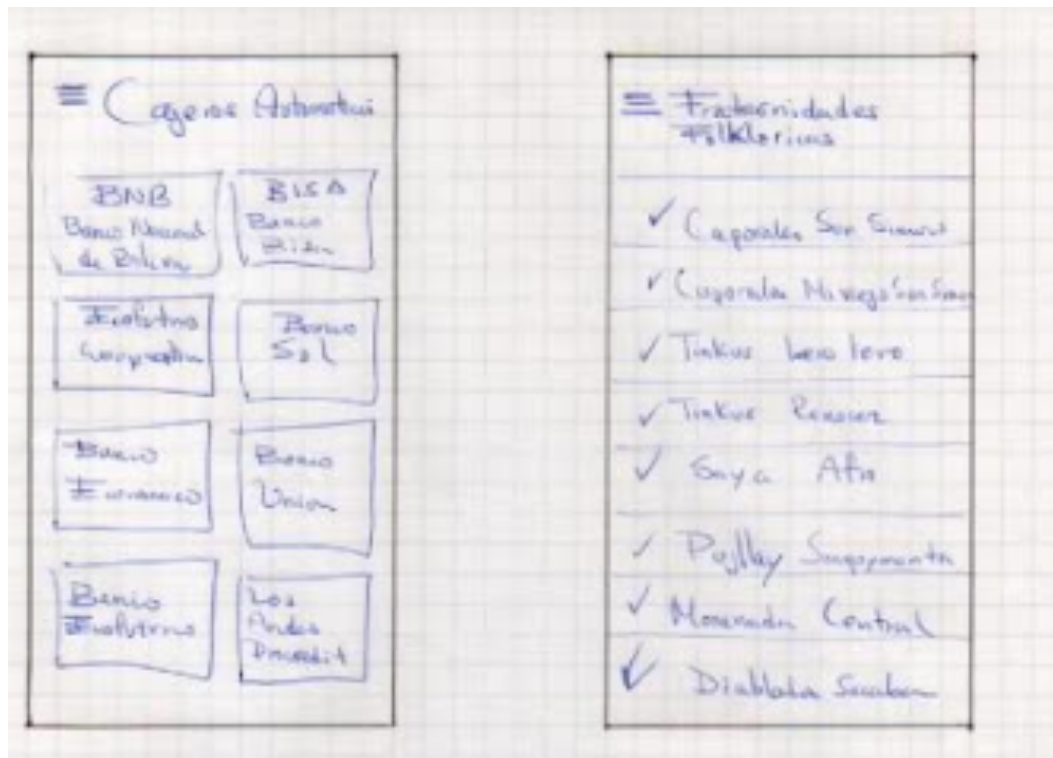 Cajeros Automaticos
BNB
Banco Nacional
de Bolivia
BISA
Banco
Bisa
Ecofuturo
Cooperativa
Banco
Sol
Banco
Economico
Banco
Union
Banco
Ecofuturo
Los
Andes
Procredit
Fraternidades
Folkloricas
Caporales San Simon
Caporales San Simon
Tinkus
Tinkus
Saya Afro
Pujllay
Morenada Central
Diablada